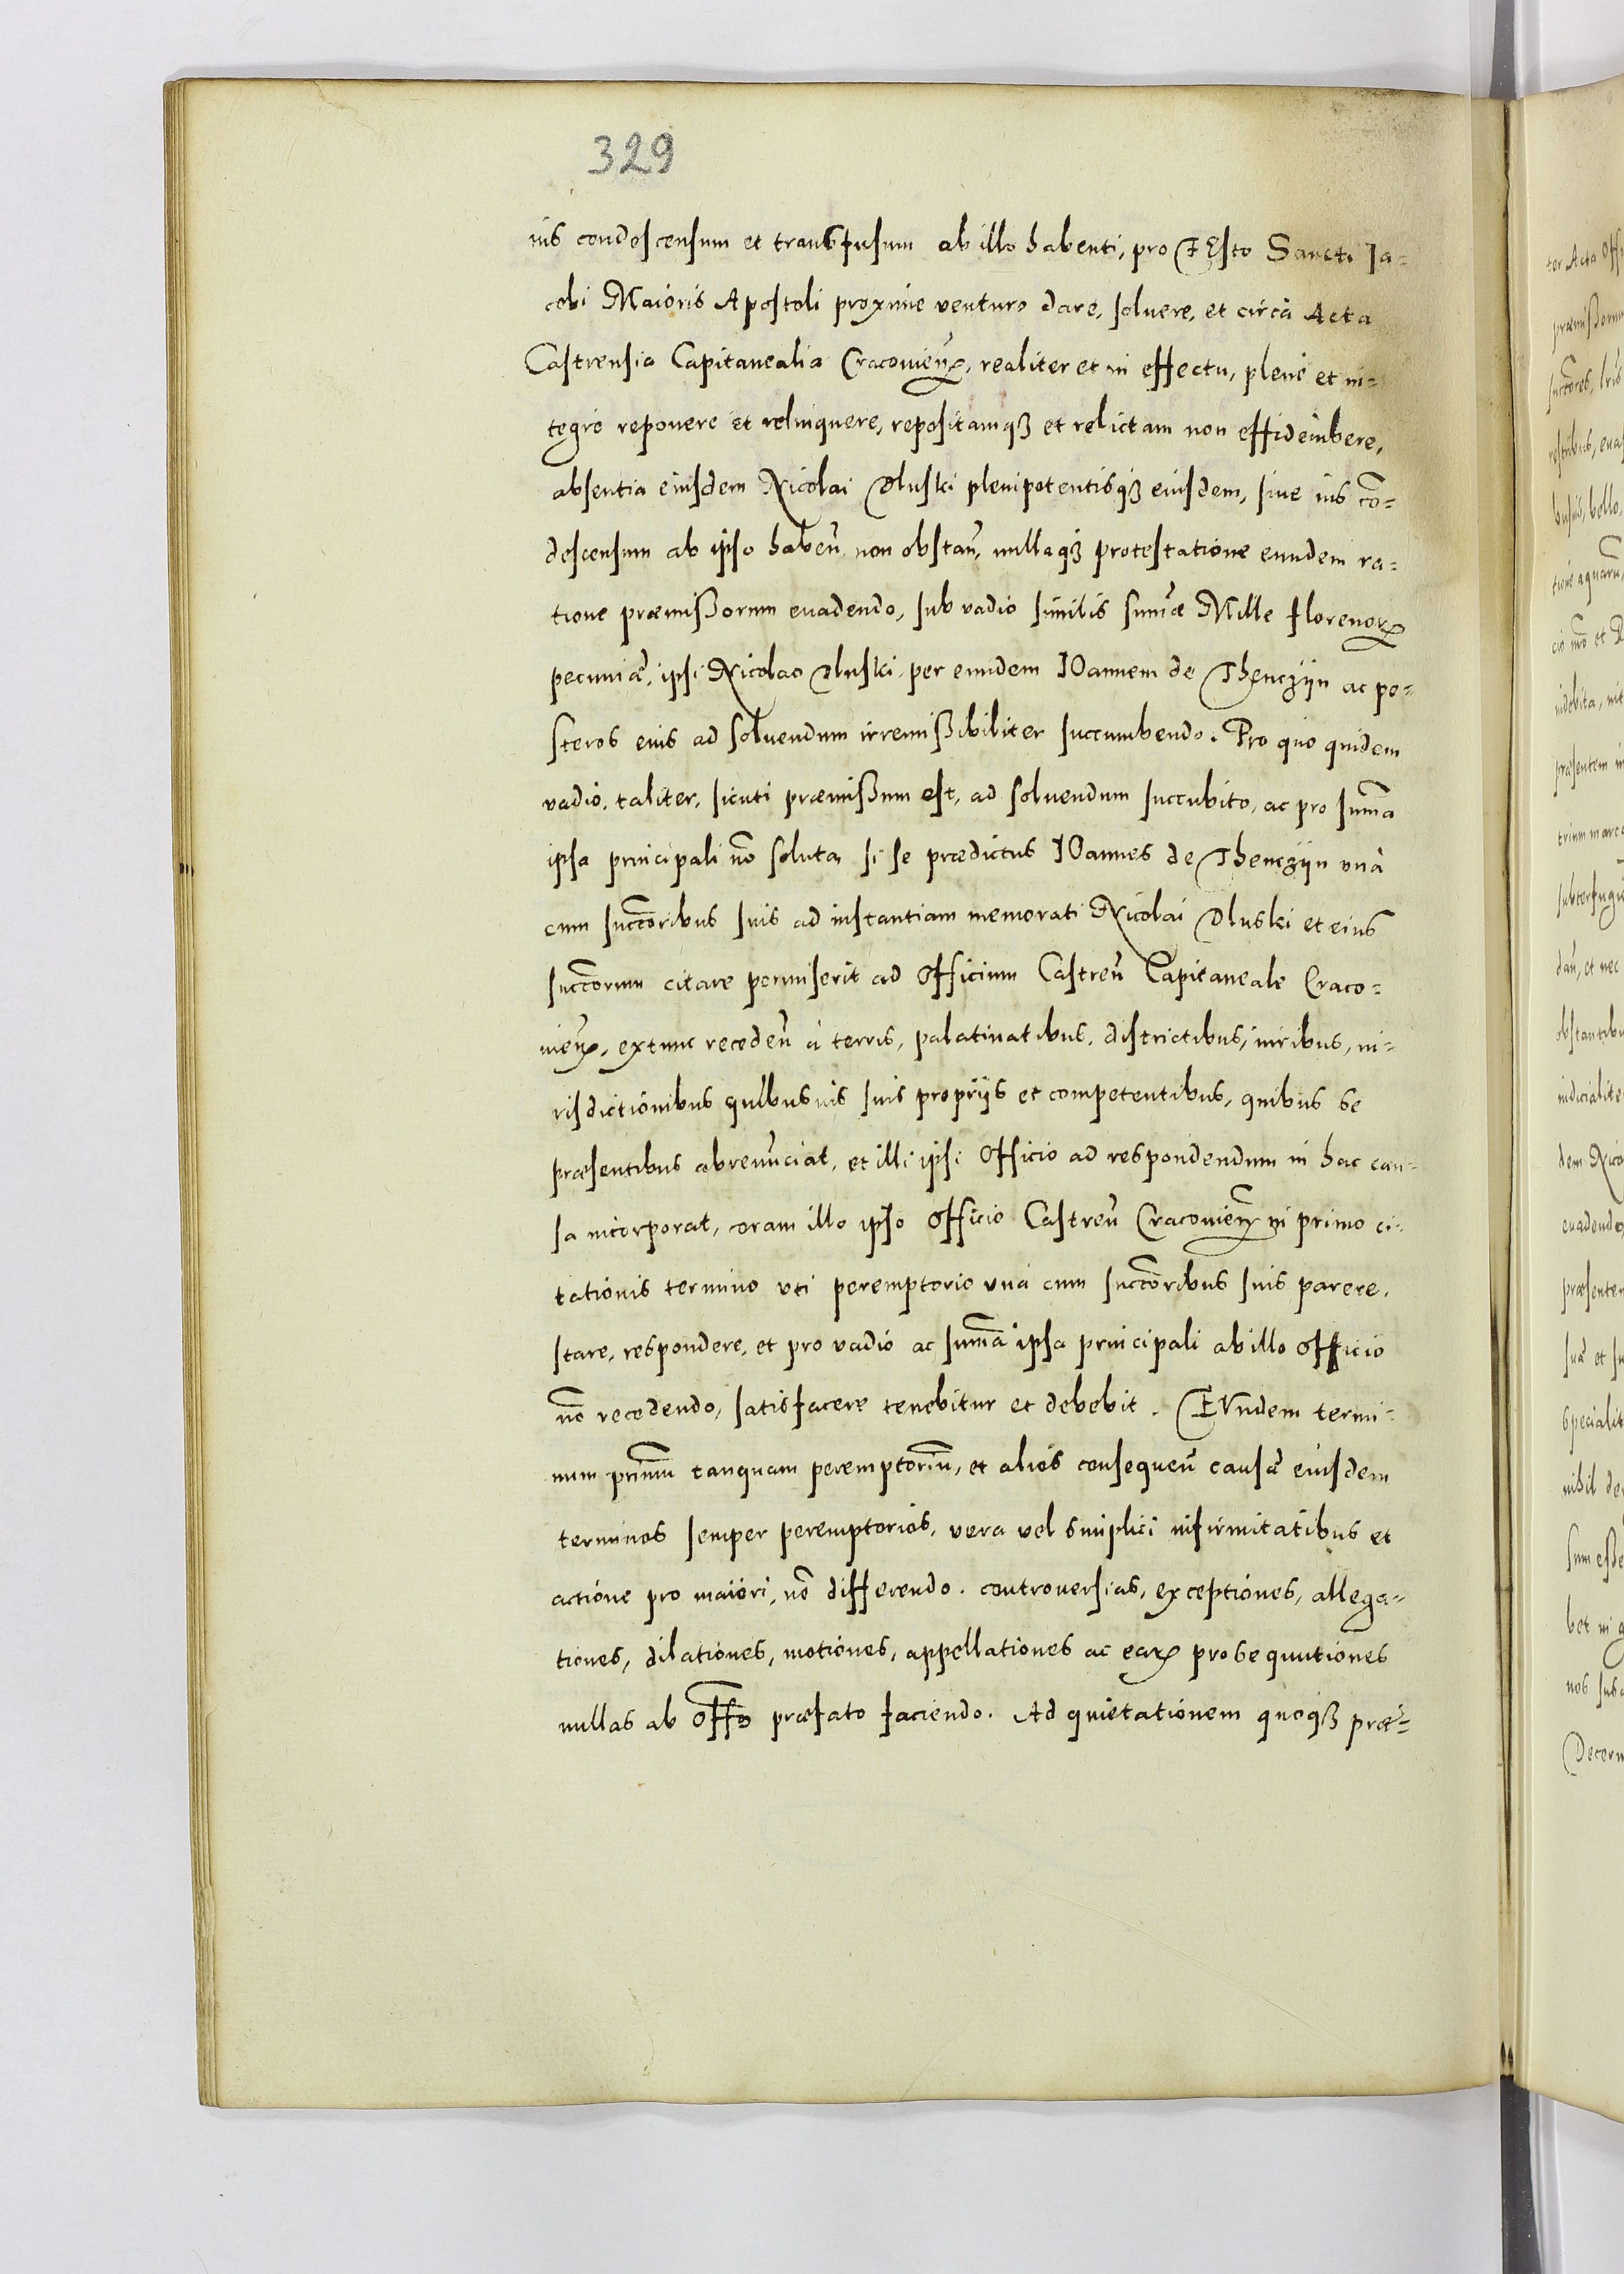 329
ius condescensum et transfusum ab illo habenti, pro FEsto Sancti Ja-
cobi Maioris Apostoli proxime venturo dare, soluere, et circa Acta
Castrensia Capitanealia Cracouien̄, realiter et in effectu, plenè et in-
tegrè reponere et relinquere, repositamqꝫ et relictam non effidembere,
absentia eiusdem Nicolai Dluski plenipotentisqꝫ eiusdem, siue ius cō-
descensum ab ipso haben̄ non obstan̄, nullaqꝫ protestatione eundem ra-
tione præmißorum euadendo, sub vadio similis sum̄æ Mille florenorꝝ
pecuniæ, ipsi Nicolao Dluski per eundem IOannem de Thenczyn ac po-
steros eius ad soluendum irremißibiliter succumbendo. Pro quo quidem
vadio, taliter, sicuti præmißum est, ad soluendum succubito, ac pro sum̄a
ipsa principali nō soluta, si se prædictus IOannes de Thenczyn unà
cum succ̄oribus suis ad instantiam memorati Nicolai Dluski et eius
succ̄orum citare permiserit ad Officium Castren̄ Capitaneale Craco-
uien̄, extunc receden̄ à terris, palatinatibus, districtibus, iuribus, iu-
risdictionibus quibusuis suis proprijs et competentibus, quibus se
præsentibus abrenunciat, et illi ipsi Officio ad respondendum in hac cau-
sa incorporat, coram illo ipso Officio Castren̄ Cracouien̄ in primo ci-
tationis termino uti peremptorio unà cum succ̄oribus suis parere,
stare, respondere, et pro vadio ac sum̄a ipsa principali ab illo Officio
nō recedendo, satisfacere tenebitur et debebit. EUndem termi-
num primū tanquam peremptoriū, et alios consequen̄ causæ eiusdem
terminos semper peremptorios, vera vel simplici infirmitatibus et
actione pro maiori, nō differendo. controuersias, exceptiones, allega-
tiones, dilationes, motiones, appellationes ac earꝝ prosequutiones
nullas ab Offō præfato faciendo. Ad quietationem quoqꝫ præ-